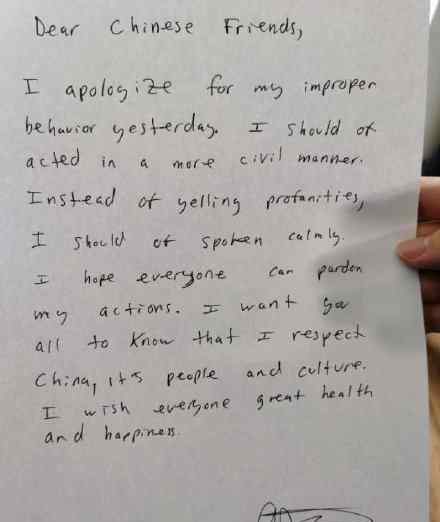 Dear Chinese Friends,
I apologize for my improper
behavior yesterday. I should of
acted in a more civil manner.
Instead of yelling profanities,
I should of spoken calmly.
I hope everyone can pardon
my actions. I want you
all to know that I respect
China, it's people and culture.
I wish everyone great health
and happiness.